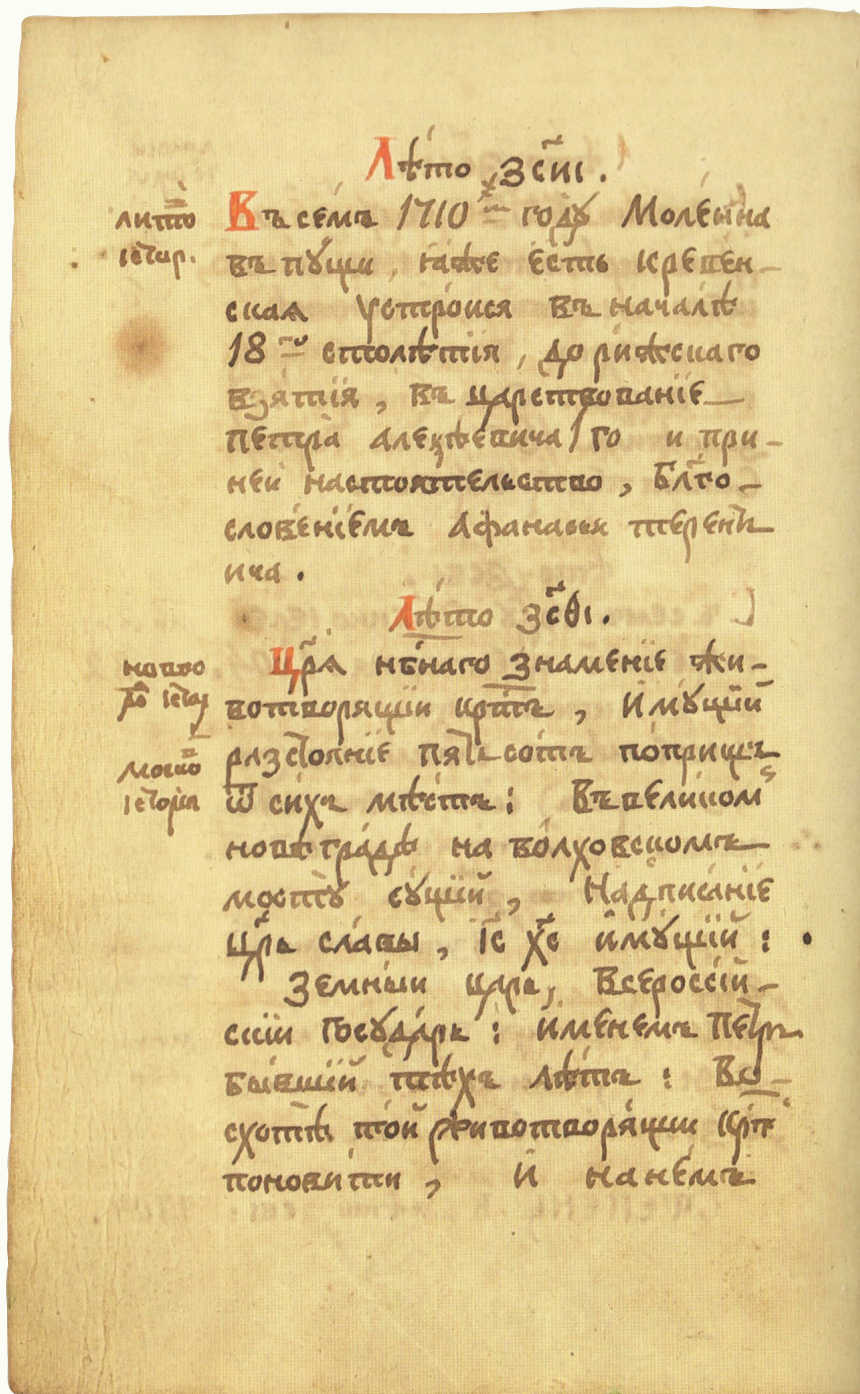 Лѣто ҂зсиі.
литов
істар.
Въ семъ 1710м году Моленна
въ пущи, яже есть кревен-
ская Устроися въ началѣ
18го столѣтія, до рижскаго
взятія, въ царствованіе
Петра алеѯѣевича 1го и при
ней настоятельство, Блго-
словеніемъ Афанасья терент
ича.
Лѣто зсѳі.
Црѧ нбнаго знаменіе жи-
новго
вотворящіи крстъ, Имущій
разстояніе пятьсотъ поприщъ
моско
исторія
ѿ сихъ мѣстъ: Въ великомъ
новѣградѣ на волховскомъ
мосту сущій, Надписаніе
црь славы, Іс Хс имущій:
Земный царь, Всероссій-
скіи Государь: именемъ Петръ
бывшій тѣхъ лѣтъ: Во-
схотѣ той животворящіи крт
поновити, И на немъ